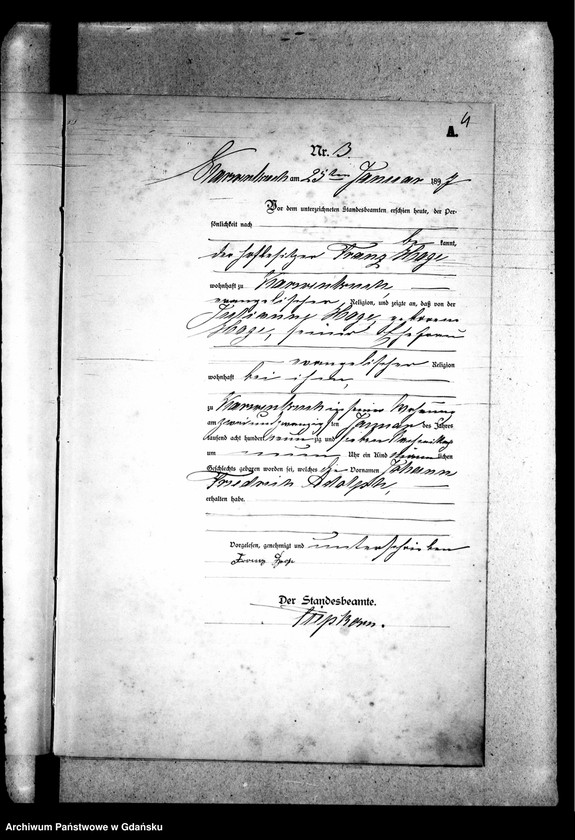 A. 4
Nr. 3.
Karwenbruch am 25ten Januar 1897
Vor dem unterzeichneten Standesbeamten erschien heute, der Per-
sönlichkeit nach
be kannt,
der Hofbesitzer Franz Hoge
wohnhaft zu Karwenbruch
evangelischer Religion, und zeigte an, daß von der
Hoge, geborene
Hoge, seiner Ehefrau
evangelischer Religion
wohnhaft bei ihm,
zu Karwenbruch in seiner Wohnung
am zweiundzwanzig ten Januar des Jahres
tausend acht hundert neun zig und sieben Vormittags
um neun Uhr ein Kind männ lichen
Geschlechts geboren worden sei, welches die Vornamen Johann
Friedrich Adolph,
erhalten habe.
Vorgelesen, genehmigt und unterschrieben
Franz Hoge
Der Standesbeamte.
Archiwum Państwowe w Gdańsku